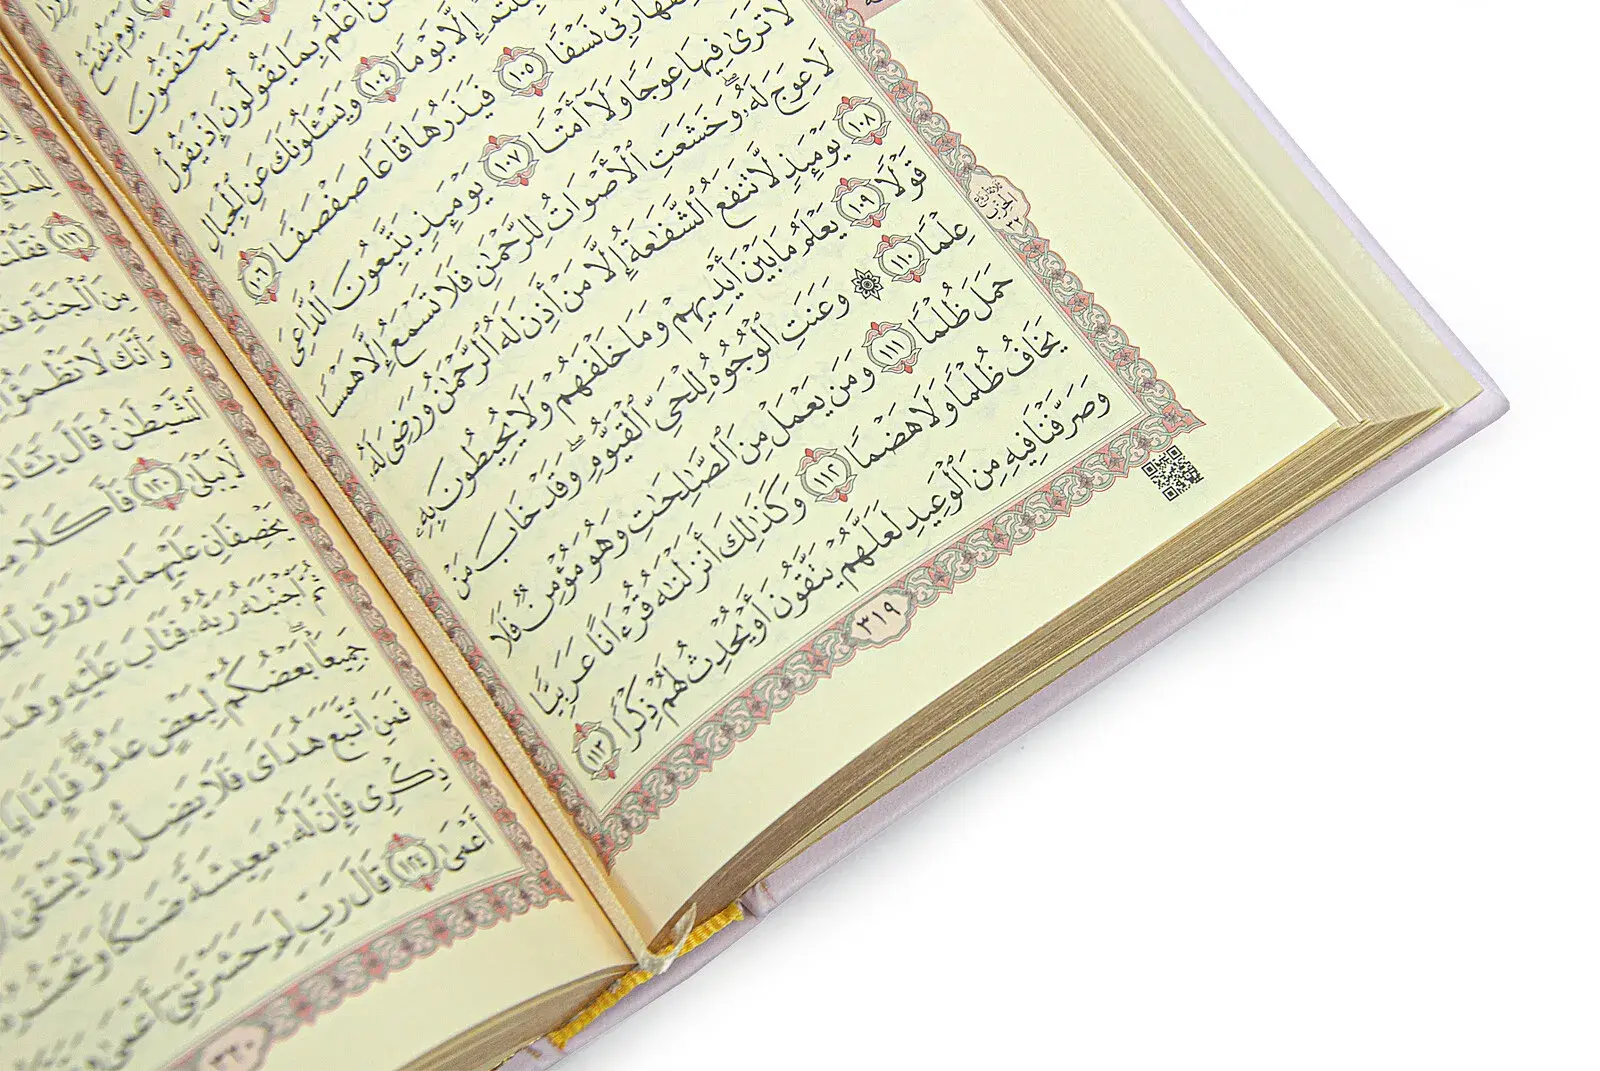 يَوْمَ يُنفَخُ
يَتَخَٰفَتُونَ
أَعْلَمُ بِمَا يَقُولُونَ إِذْ يَقُولُ
إِلَّا يَوْمًا ١٠٤ وَيَسْـَٔلُونَكَ عَنِ ٱلْجِبَالِ
رَبِّى نَسْفًا ١٠٥ فَيَذَرُهَا قَاعًا صَفْصَفًا ١٠٦
لَّا تَرَىٰ فِيهَا عِوَجًا وَلَآ أَمْتًا ١٠٧ يَوْمَئِذٍ يَتَّبِعُونَ ٱلدَّاعِىَ
لَا عِوَجَ لَهُۥ ۖ وَخَشَعَتِ ٱلْأَصْوَاتُ لِلرَّحْمَٰنِ فَلَا تَسْمَعُ إِلَّا هَمْسًا
١٠٨ يَوْمَئِذٍ لَّا تَنفَعُ ٱلشَّفَٰعَةُ إِلَّا مَنْ أَذِنَ لَهُ ٱلرَّحْمَٰنُ وَرَضِىَ لَهُۥ
قَوْلًا ١٠٩ يَعْلَمُ مَا بَيْنَ أَيْدِيهِمْ وَمَا خَلْفَهُمْ وَلَا يُحِيطُونَ بِهِۦ
عِلْمًا ١١٠ ۞ وَعَنَتِ ٱلْوُجُوهُ لِلْحَىِّ ٱلْقَيُّومِ ۖ وَقَدْ خَابَ مَنْ
حَمَلَ ظُلْمًا ١١١ وَمَن يَعْمَلْ مِنَ ٱلصَّٰلِحَٰتِ وَهُوَ مُؤْمِنٌ فَلَا
يَخَافُ ظُلْمًا وَلَا هَضْمًا ١١٢ وَكَذَٰلِكَ أَنزَلْنَٰهُ قُرْءَانًا عَرَبِيًّا
وَصَرَّفْنَا فِيهِ مِنَ ٱلْوَعِيدِ لَعَلَّهُمْ يَتَّقُونَ أَوْ يُحْدِثُ لَهُمْ ذِكْرًا ١١٣
الحزب
٣٢
٣١٩
١١٦ فَقُلْنَا
مِنَ ٱلْجَنَّةِ
وَأَنَّكَ لَا تَظْمَؤُا۟
ٱلشَّيْطَٰنُ قَالَ يَٰٓـَٔادَمُ
لَّا يَبْلَىٰ ١٢٠ فَأَكَلَا
يَخْصِفَانِ عَلَيْهِمَا مِن وَرَقِ
ثُمَّ ٱجْتَبَٰهُ رَبُّهُۥ فَتَابَ عَلَيْهِ وَهَدَىٰ
جَمِيعًۢا ۖ بَعْضُكُمْ لِبَعْضٍ عَدُوٌّ ۖ فَإِمَّا
فَمَنِ ٱتَّبَعَ هُدَاىَ فَلَا يَضِلُّ وَلَا يَشْقَىٰ
ذِكْرِى فَإِنَّ لَهُۥ مَعِيشَةً ضَنكًا وَنَحْشُرُهُۥ
أَعْمَىٰ ١٢٤ قَالَ رَبِّ لِمَ حَشَرْتَنِىٓ أَعْمَىٰ
٣٢٠